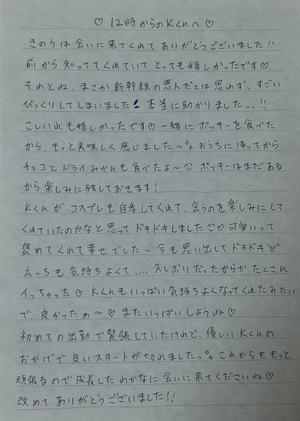 ♡ 12時からのKくんへ ♡
きのうは会いに来てくれてありがとうございました!!
前から知っててくれていてとっても嬉しかったです♡
それとね、まさか新幹線の恩人だとは思わず、すごい
びっくりしてしまいました! 本当に助かりました...!!
さしいれも嬉しかったです♡ 一緒にポッキーを食べた
から、もっと美味しく感じました〜 おうちに帰ってから
チョコとドライみかんも食べたよ〜 ポッキーはまだある
から楽しみに残しておきます!
Kくんがコスプレも自参してくれて、会うのを楽しみにして
くれていたのかなと思ってドキドキしました♡ 可愛いって
褒めてくれて幸せでした〜 今も思い出してドキドキ
えっちも気持ちよくて.... スレポリだったからかたくさん
イっちゃった♡ Kくんもいっぱい気持ちよくなってくれたみたい
で良かったの〜♡ またいっぱいしようね♡
初めての出勤で緊張していたけれど、優しいKくんの
おかげで良いスタートがきれました これからももっと
頑張るので成長したわかなに会いに来てくださいね♡
改めてありがとうございました!!